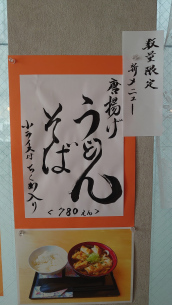 数量限定
新メニュー
唐揚げ
うどん
そば
小ライス付 ちくわ入り
<780えん>